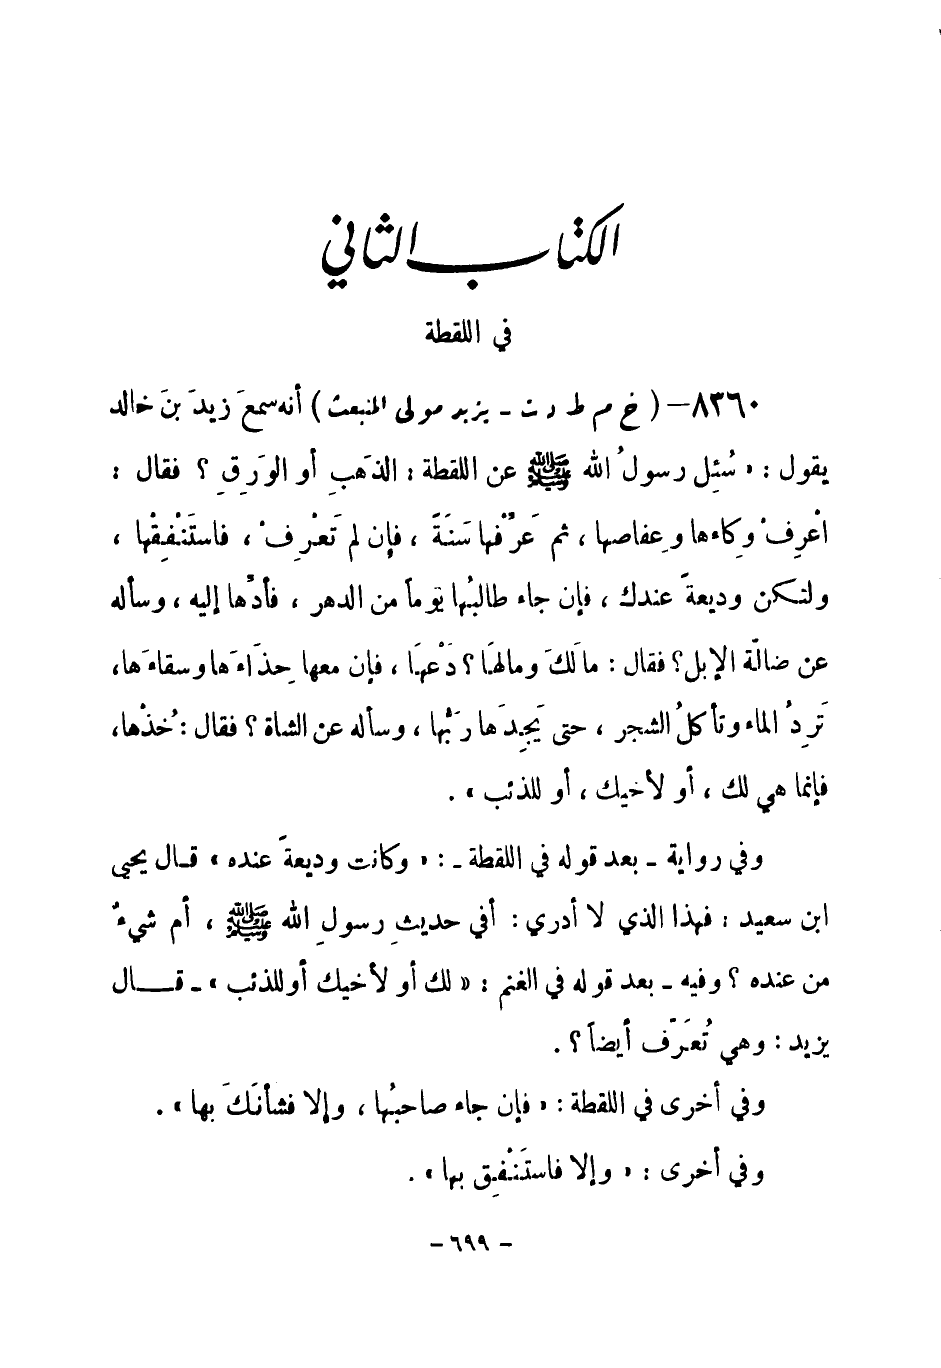 الكتاب الثاني
في اللقطة
٨٣٦٠ – ( خ م ط د ت ـ يزيد مولى المنبعث ) أنه سمعَ زيدَ بنَ خالد
يقول : « سُئِل رسولُ الله ﷺ عن اللقطة : الذهَبِ أو الوَرِقِ ؟ فقال :
اعْرِفْ وِكاءها وعِفاصها ، ثم عَرِّفْها سَنَةً ، فإن لم تَعْرِفْ ، فاستَنْفِقْها ،
ولتكن وديعةً عندك ، فإن جاء طالبُها يَوماً من الدهر ، فأدِّها إليه ، وسأله
عن ضالّة الإبل؟ فقال : مالَكَ ومالهَا ؟ دَعْهَا ، فإن معها حِذَاءَها وسقاءَها،
تَرِدُ الماء وتأكلُ الشجر ، حتى يَجِدَها رَبُّها ، وسأله عن الشاة ؟ فقال : خُذْها،
فإنما هي لك ، أو لأخيك ، أو للذئب » .
وفي رواية ـ بعد قوله في اللقطة ـ : « وكانت وديعةً عنده » قال يحيى
ابن سعيد : فهذا الذي لا أدري : أفي حديثِ رسولِ الله ﷺ ، أم شيءٌ
من عنده ؟ وفيه ـ بعد قوله في الغنم : « لك أو لأخيك أو للذئب » ـ قــال
يزيد : وهي تُعَرَّف أيضاً ؟ .
وفي أخرى في اللقطة : « فإن جاء صاحبُها ، وإلا فشأنَكَ بها » .
وفي أخرى : « وإلا فاستَنْفِق بها » .
– ٦٩٩ –